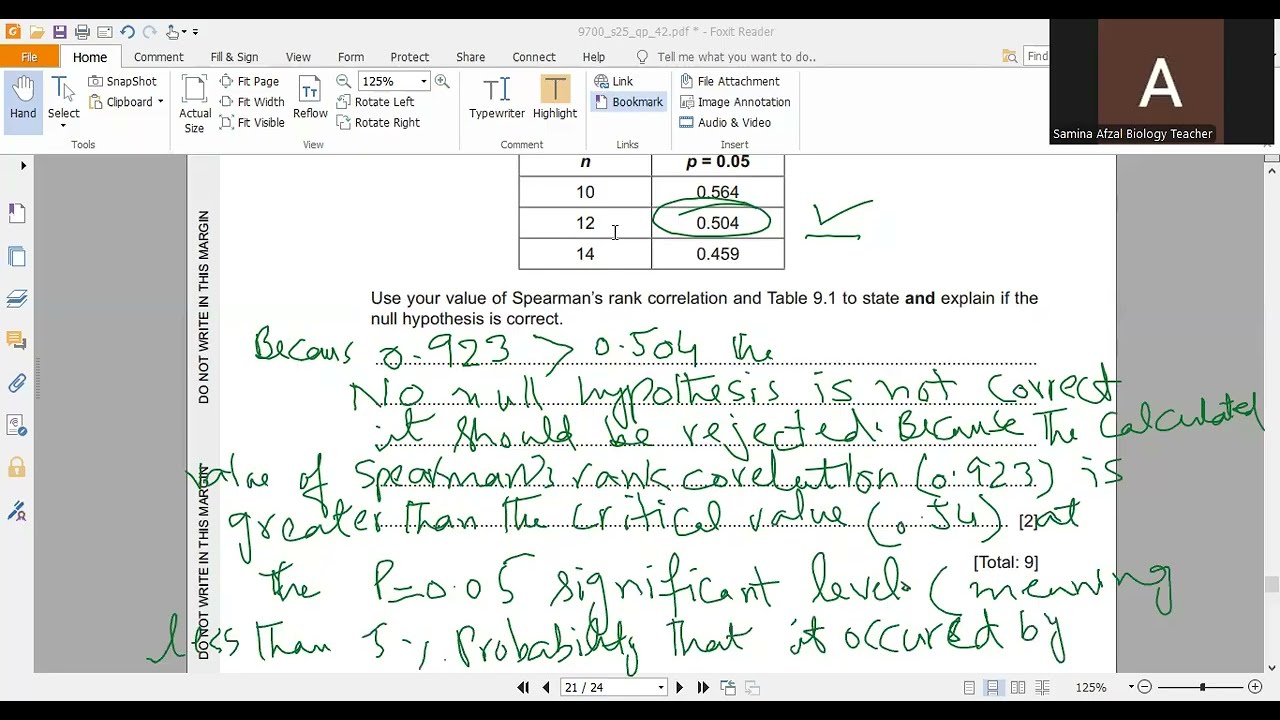 9700_s25_qp_42.pdf * - Foxit Reader
File Home Comment Fill & Sign View Form Protect Share Connect Help Tell me what you want to do.. Find
Hand
Select
SnapShot
Clipboard
Actual Size
Fit Page
Fit Width
Fit Visible
Reflow
125%
Rotate Left
Rotate Right
Typewriter
Highlight
Link
Bookmark
File Attachment
Image Annotation
Audio & Video
Tools View Comment Links Insert
A
Samina Afzal Biology Teacher
DO NOT WRITE IN THIS MARGIN
DO NOT WRITE IN THIS MARGIN
n p = 0.05
10 0.564
12 0.504
14 0.459
Use your value of Spearman's rank correlation and Table 9.1 to state and explain if the
null hypothesis is correct.
Becaus 0.923 > 0.504 the
No null hypothesis is not correct
it should be rejected. Because The Calculated
value of spearman's rank corelation (0.923) is
greater than the critical value (0.54) [2] at
[Total: 9]
the P=0.05 significant level. (meaning
less than 5 %. Probability that it occured by
21 / 24
125%